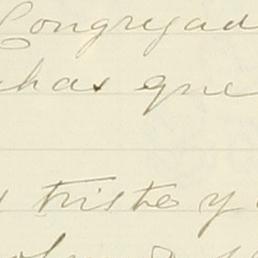 Congregad
chas que
triste y